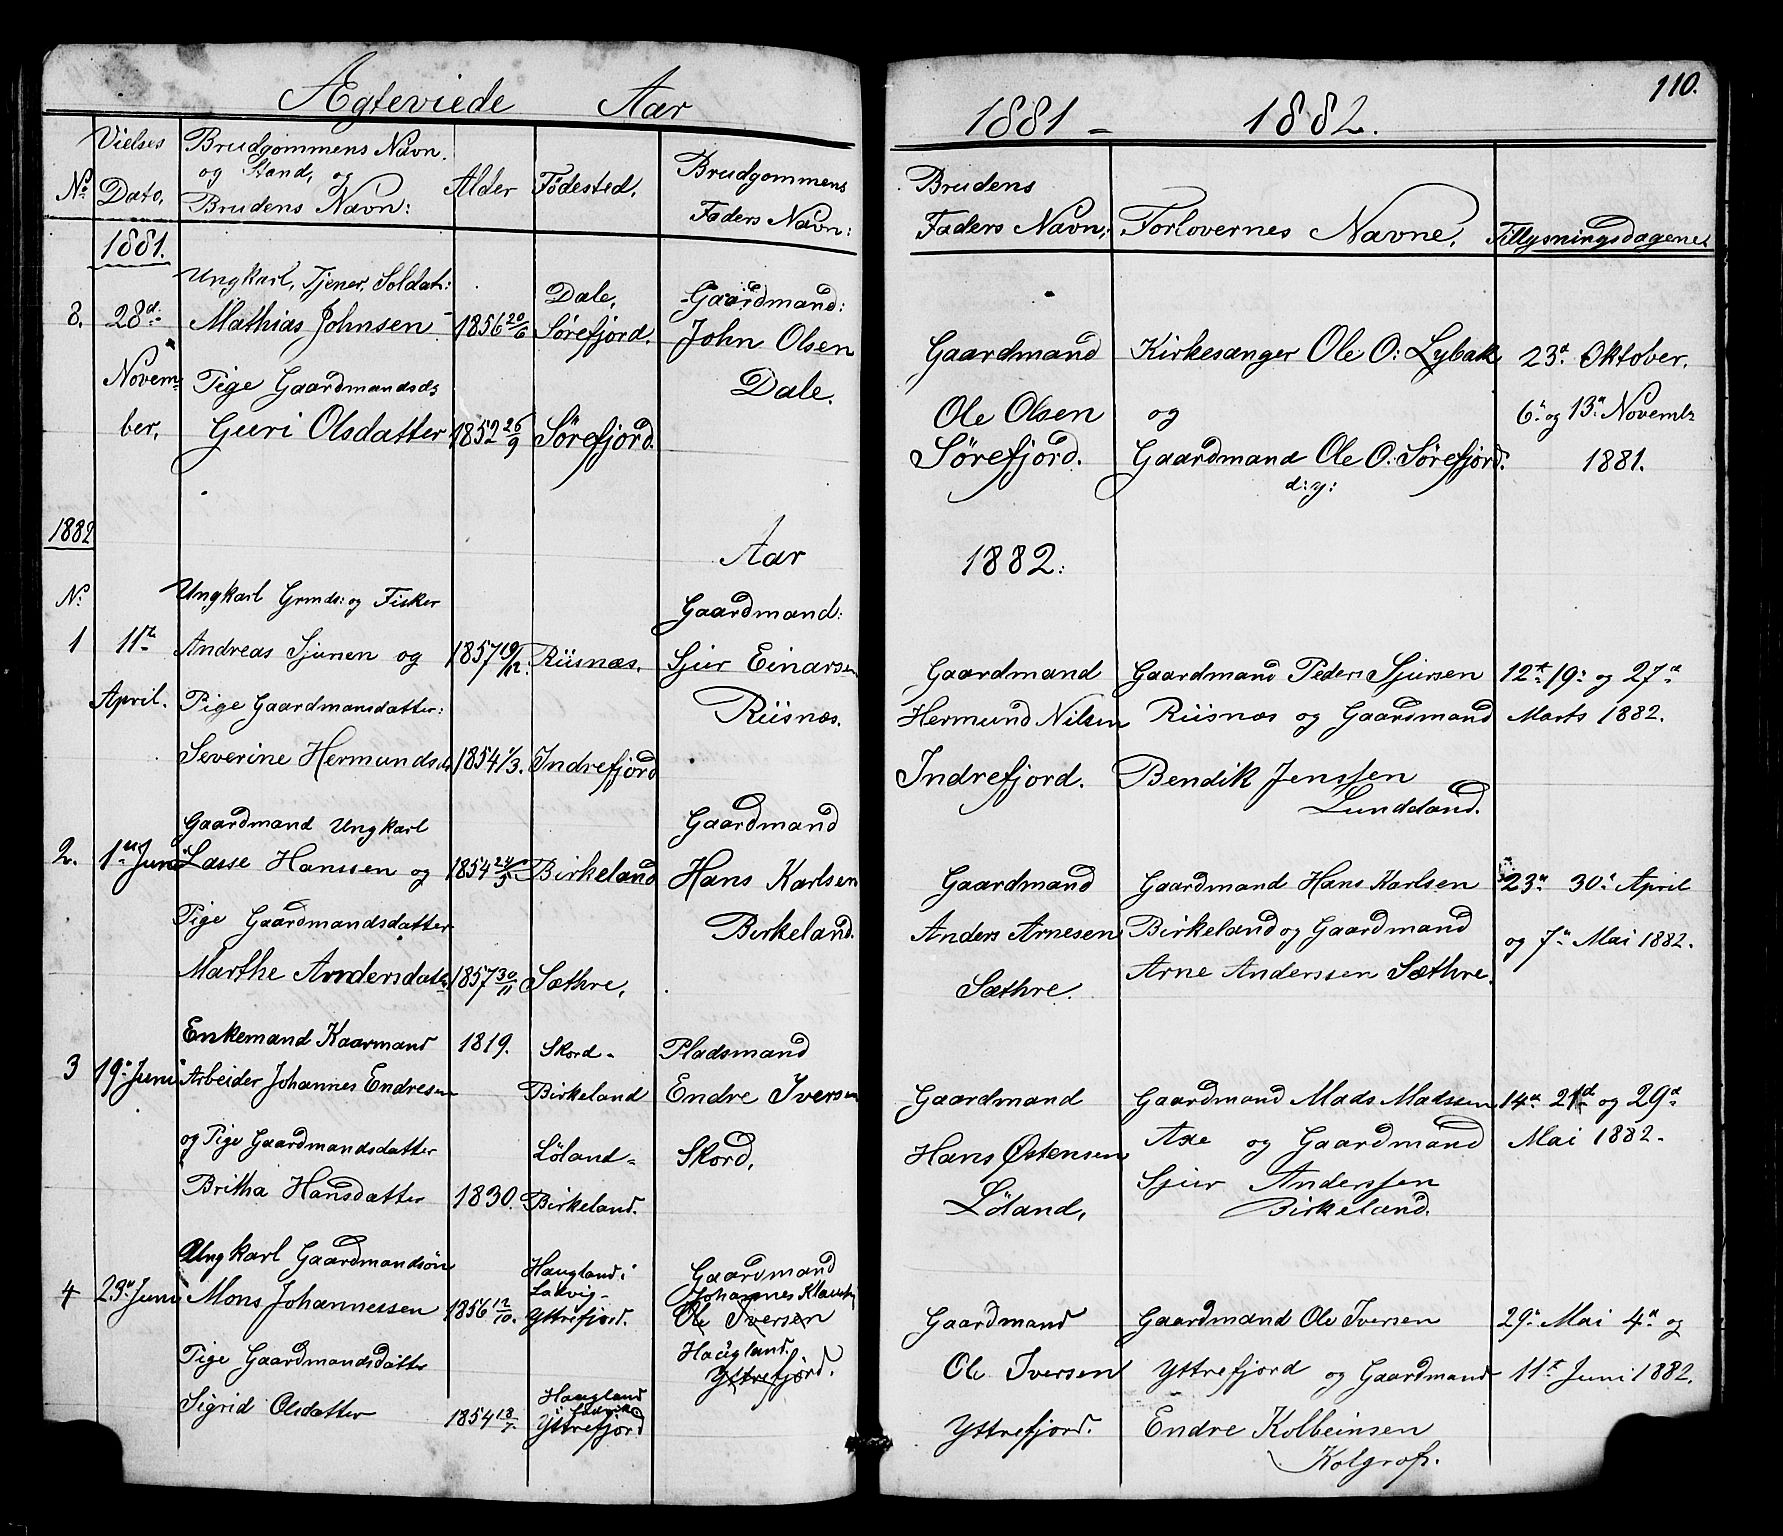 Ægteviede Aar
Vielses
No. Dato.
Brudgommens Navn.
og Stand, og
Brudens Navn:
Alder
Fødested.
Brudgommens
Faders Navn:
1881.
Ungkarl, Tjener, Soldat:
8. 28d. Mathias Johnsen 1856 20/6
Dale,
Sørefjord.
Gaardmand:
John Olsen
Dale.
Novem-
ber.
Pige Gaardmandsd.
Guri Olsdatter 1852 26/9 Sørefjord.
1882
Aar
No.
Ungkarl Grmds: og Fisker
Gaardmand:
1 11te Andreas Sjursen og 1857 19/12. Riisnæs. Sjur Einarsen
April. Pige Gaardmansdatter:
Riisnæs.
Severine Hermundsd. 1854 1/3. Indrefjord
Gaardmand Ungkarl
Gaardmand
2. 1ste Juni Lasse Hanssen og 1854 24/5 Birkeland Hans Karlsen
Pige Gaardmandsdatter
Birkeland.
Marthe Andersdatt. 1857 30/11 Sæthre.
Enkemand Kaarmand 1819. Skord- Pladsmand
3 19de Juni Arbeider Johannes Endresen Birkeland Endre Iversen
og Pige Gaardmandsdatter Løland- Skord.
Britha Hansdatter 1830. Birkeland.
Ungkarl Gaardmandsøn
Haugland i
Ladvig-
Gaardmand
Johannes
4 23de Juni Mons Johannessen 1856 12/10. Yttrefjord. Ole Iversen
Haugland.
Pige Gaardmandsdatter
Yttrefjord.
Haugland
i Ladvik
Sigrid Olsdatter 1854 18/7. Yttrefjord
110.
1881 - 1882.
Brudens
Faders Navn:
Forlovernes Navne.
Tillysningsdagene.
Gaardmand Kirkesanger Ole O: Lybak 23de Oktober.
Ole Olsen og 6te og 13de Novembr
Sørefjord. Gaardmand Ole O: Sørefjord. 1881.
d: y:
1882:
Gaardmand Gaardmand Peder Sjursen 12te 19de og 27de
Hermund Nilsen Riisnæs og Gaardmand Marts 1882.
Indrefjord. Bendik Jenssen
Lundeland.
Gaardmand Gaardmand Hans Karlsen 23de 30te April
Anders Arnesen Birkeland og Gaardmand og 7de Mai 1882.
Sæthre. Arne Anderssen Sæthre.
Gaardmand Gaardmand Mads Madssen 14de 21de og 29de
Hans Østensen Axe og Gaardmand Mai 1882.
Løland. Sjur Anderssen
Birkeland.
Gaardmand Gaardmand Ole Iversen 29de Mai 4de og
Ole Iversen Yttrefjord og Gaardmand 11te Juni 1882.
Yttrefjord. Endre Kolbeinsen
Kolgrof.